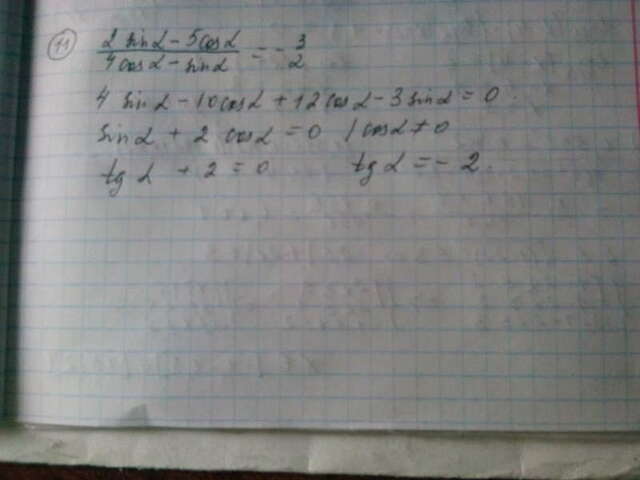 11 (2 sinα - 5cosα)/(4cosα - sinα) = - 3/2
4 sinα - 10cosα + 12cosα - 3sinα = 0.
sinα + 2 cosα = 0 | cosα ≠ 0
tg α + 2 = 0 tg α = - 2.